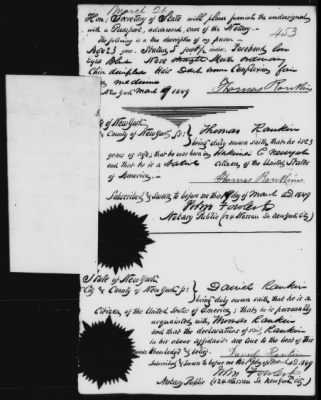 March 21
Hon: Secretary of State will please furnish the undersigned
with a Passport, addressed, care of the Notary.
453
The following is a description of my person.
Age 23 years. Stature, 5 feet in. Forehead low
Eyes Blue Nose straight Mouth ordinary
Chin dimpled Hair Dark brown Complexion fair
medium
New York March 19 1849 Thomas Rankin
State of New York
& County of New York, ss: Thomas Rankin
being duly sworn saith, that he is 23
years of age; that he was born in
and that he is a native citizen of the United States
of America.
Thomas Rankin
Subscribed & Sworn to before me this 19 day of March A.D. 1849
Wm Fowler
Notary Public (124 Nassau St. New York City)
State of New York
City & County of New York, ss: Daniel Rankin
being duly sworn saith, that he is a
Citizen of the United States of America; that he is personally
acquainted with Thomas Rankin
and that the declarations of said Rankin
in his above affidavit are true to the best of this
Knowledge & belief. Daniel Rankin
Subscribed & Sworn to before me this 19 day of March A.D. 1849
Wm Fowler
Notary Public (124 Nassau St. New York City)